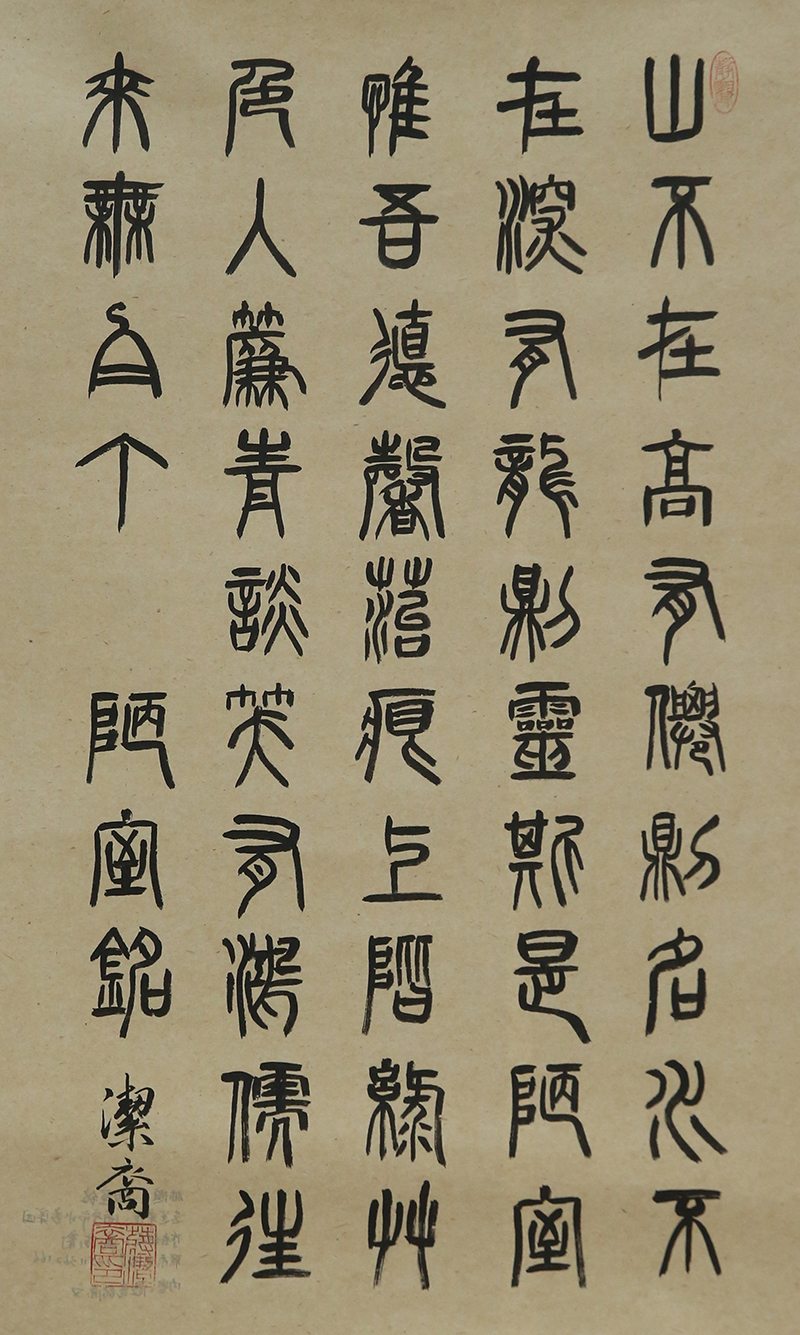 山不在高有僊則名水不
在深有龍則靈斯是陋室
惟吾德馨苔痕上階綠艸
色入簾青談笑有鴻儒往
來無白丁　陋室銘
潔裔